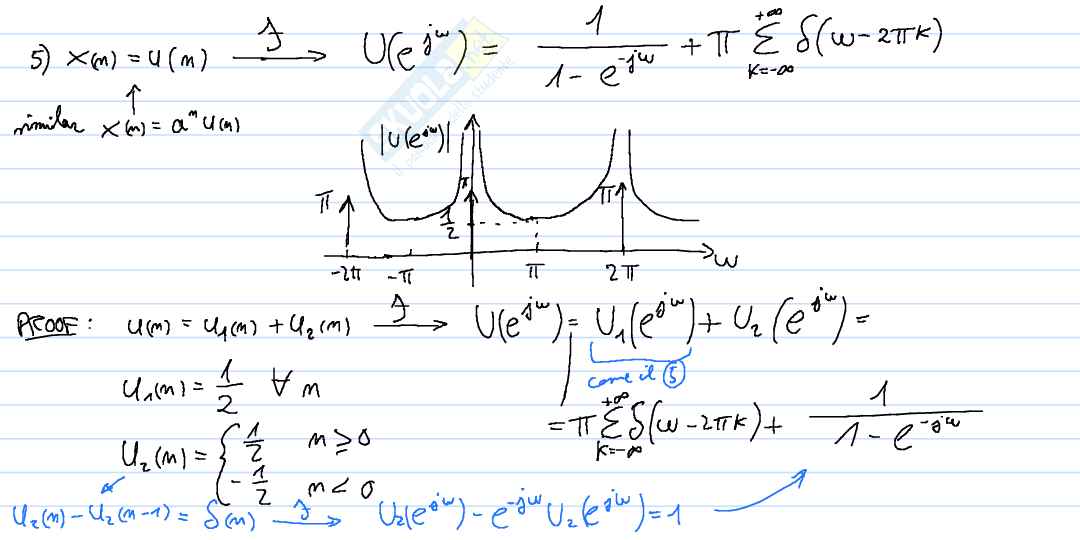 5) x(n) = u(n) ℱ→ U(e^{jω}) = 1/(1 - e^{-jω}) + π Σ_{k=-∞}^{+∞} δ(ω - 2πk)
similar x(n) = a^n u(n)
|U(e^{jω})|
π π π
1/2
-2π -π π 2π ω
PROOF: u(n) = u₁(n) + u₂(n) ℱ→ U(e^{jω}) = U₁(e^{jω}) + U₂(e^{jω}) =
come il ⑤
u₁(n) = 1/2 ∀ n
= π Σ_{k=-∞}^{+∞} δ(ω - 2πk) + 1/(1 - e^{-jω})
u₂(n) = { 1/2 n ≥ 0
- 1/2 n < 0
u₂(n) - u₂(n-1) = δ(n) ℱ→ U₂(e^{jω}) - e^{-jω} U₂(e^{jω}) = 1